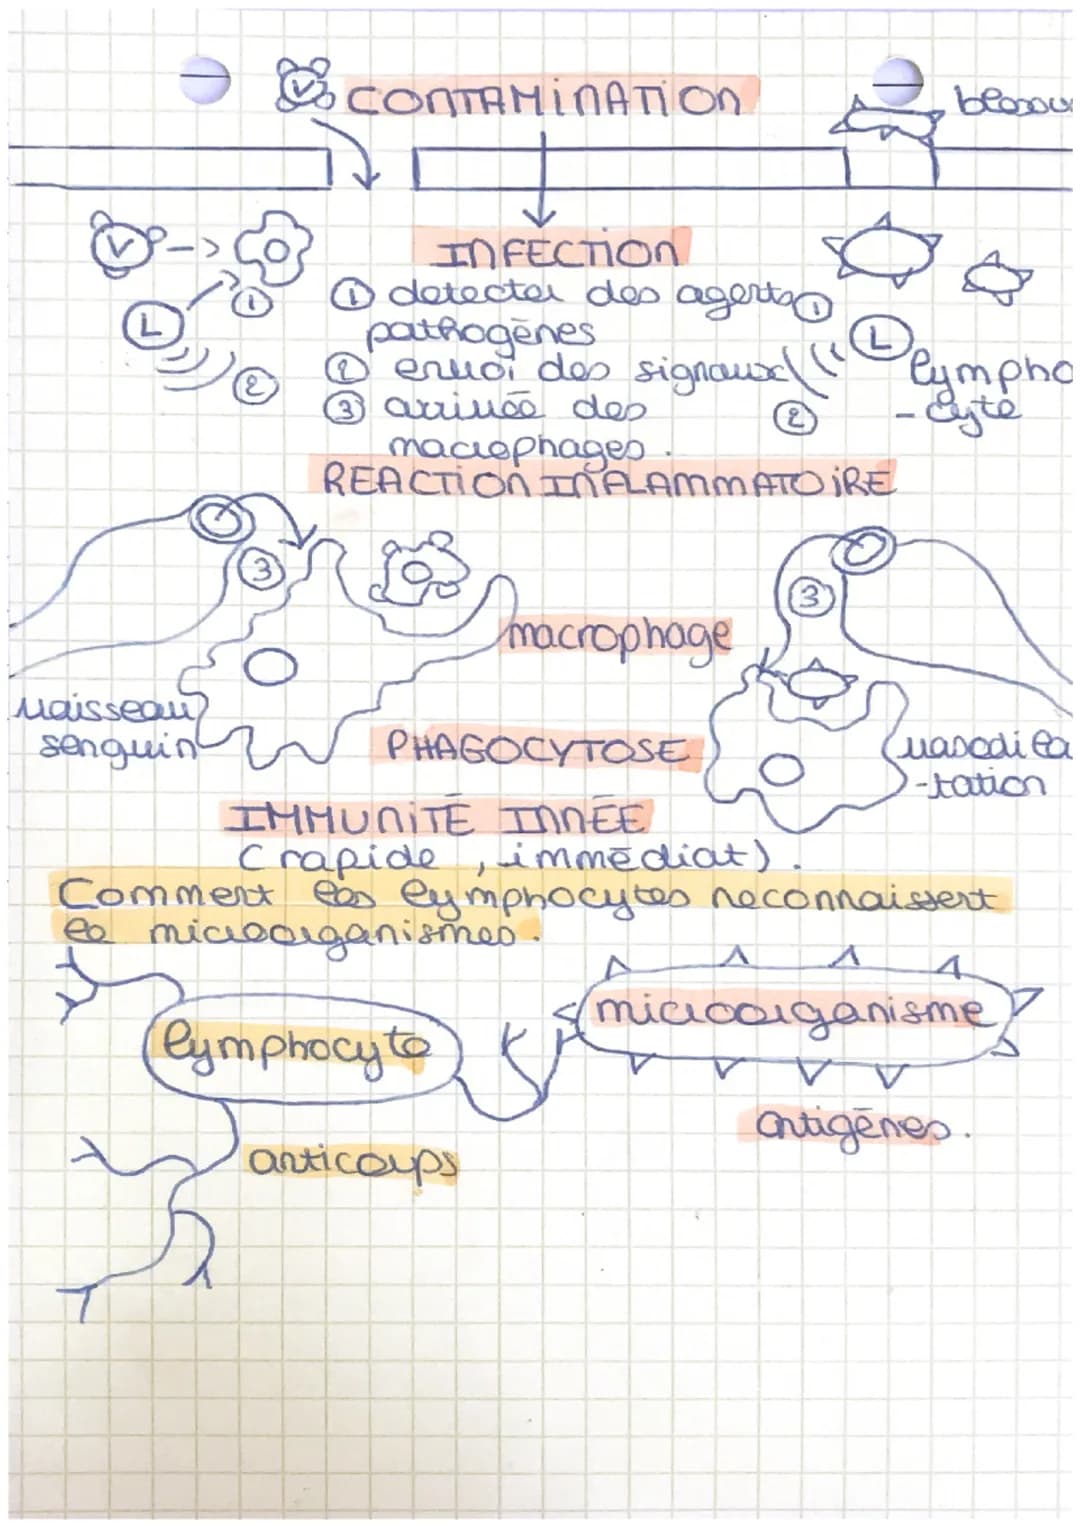 V
CONTAMINATION
V
INFECTION
① detecter des agents
pathogènes
② envoi des signaux
③ arrivée des
macrophages.
L
①
②
①
L
lympho
- cyte
②
REACTION INFLAMMATOIRE
③
③
macrophage
vaisseau
senguin
PHAGOCYTOSE
vasodila
-tation
IMMUNITÉ INNÉE
(rapide, immédiat).
Comment les lymphocytes reconnaissent
le microorganismes.
lymphocyte
microorganisme
antigènes.
anticorps